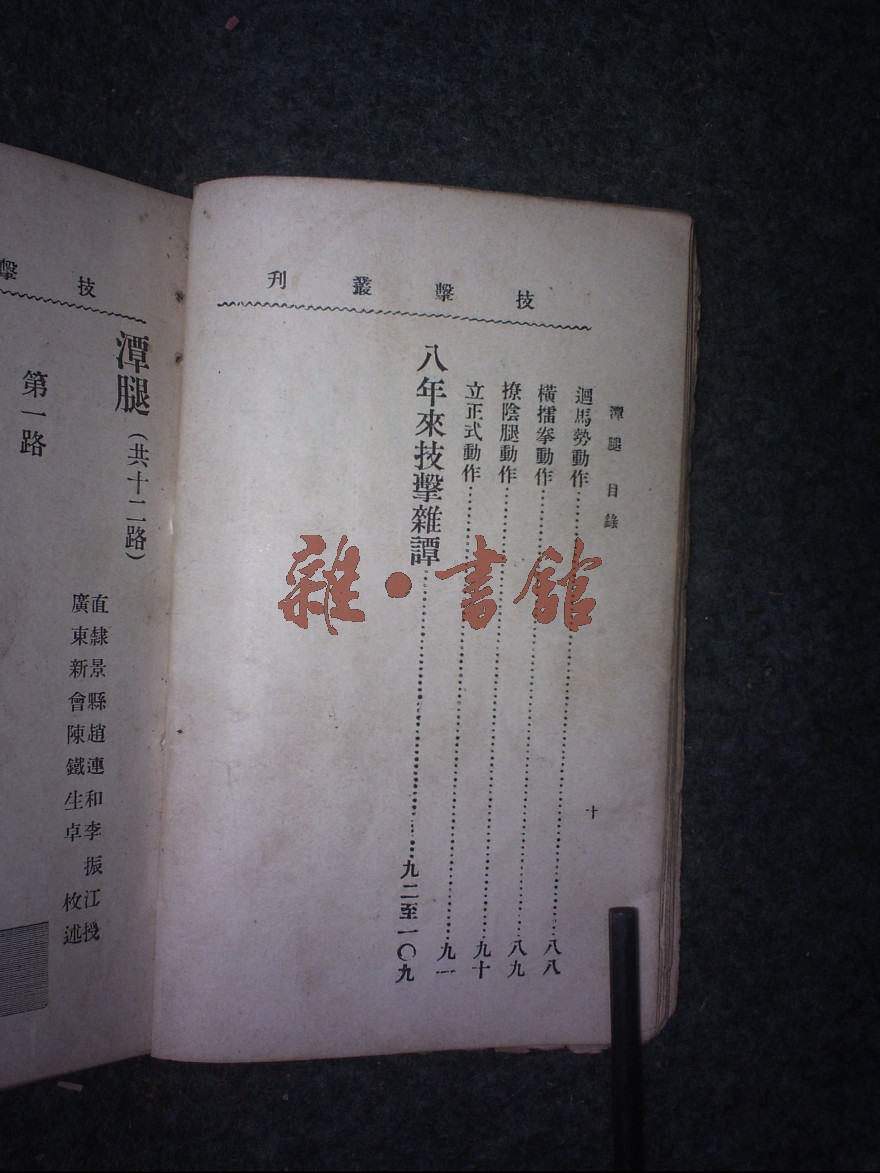 技擊叢刊
潭腿目錄
十
迴馬勢動作……八八
橫擂拳動作……八九
撩陰腿動作……九十
立正式動作……九一
八年來技擊雜譚……九二至一〇九
雜·書館
技擊
潭腿（共十二路）
直隸景縣趙連和李振江授
廣東新會陳鐵生卓枚述
第一路